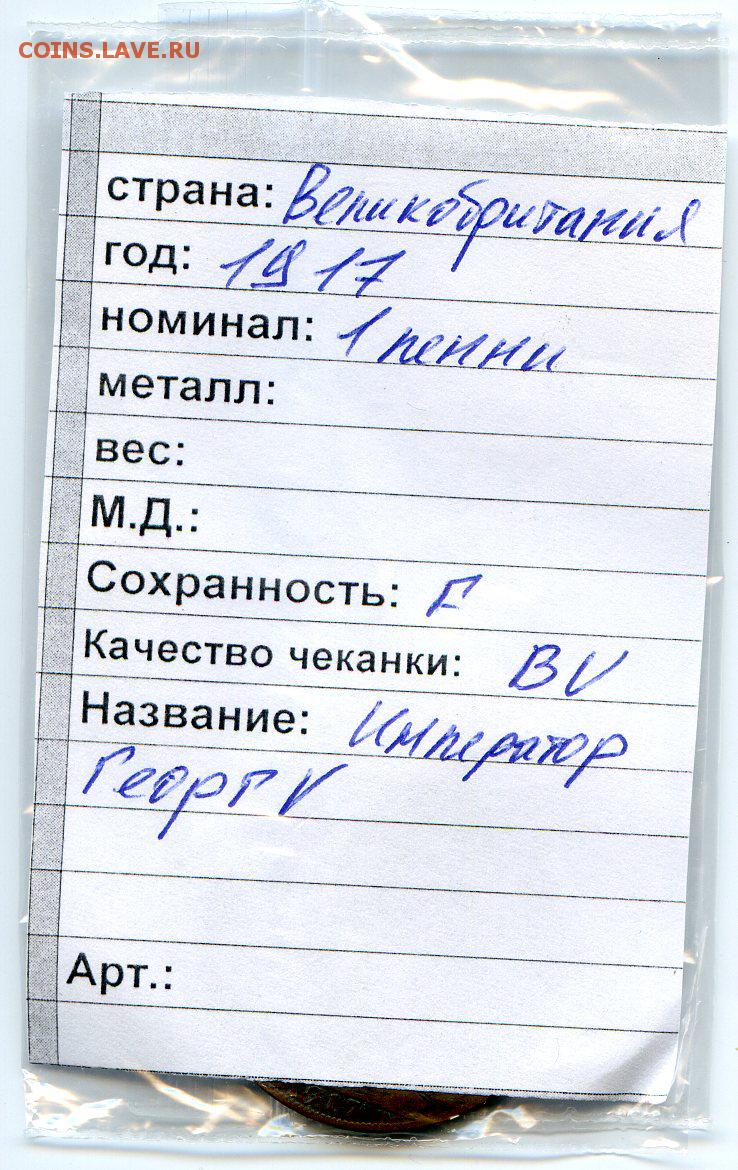 COINS.LAVE.RU
страна: Великобритания
год: 1917
номинал: 1 пенни
металл:
вес:
М.Д.:
Сохранность: F
Качество чеканки: BU
Название: Император
Георг V
Арт.: